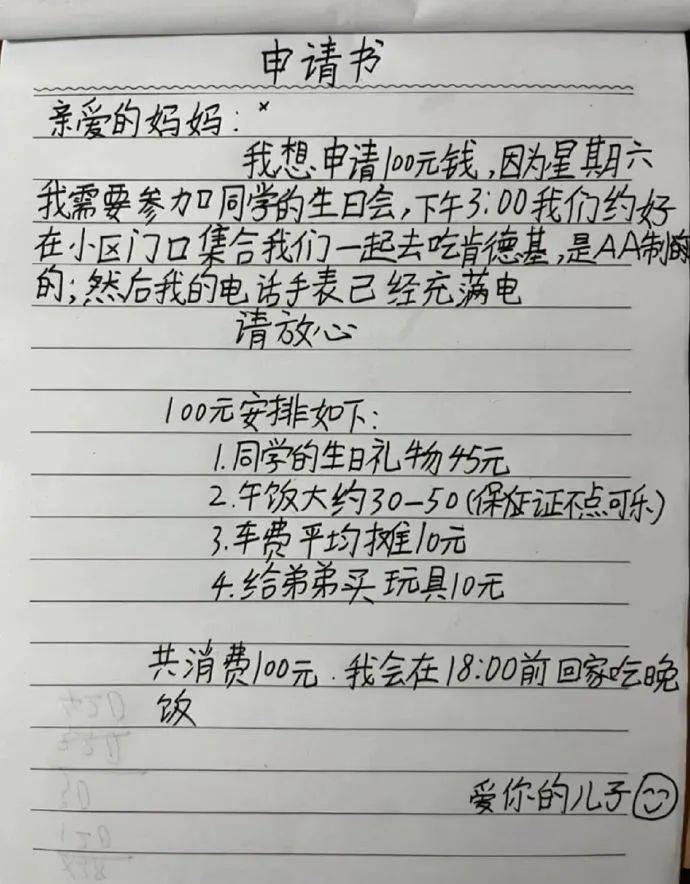 申请书
亲爱的妈妈：
我想申请100元钱，因为星期六
我需要参加同学的生日会，下午3:00我们约好
在小区门口集合我们一起去吃肯德基，是AA制的
的；然后我的电话手表已经充满电
请放心
100元安排如下：
1.同学的生日礼物45元
2.午饭大约30-50(保证证不点可乐)
3.车费平均摊10元
4.给弟弟买玩具10元
共消费100元.我会在18:00前回家吃晚
饭
爱你的儿子